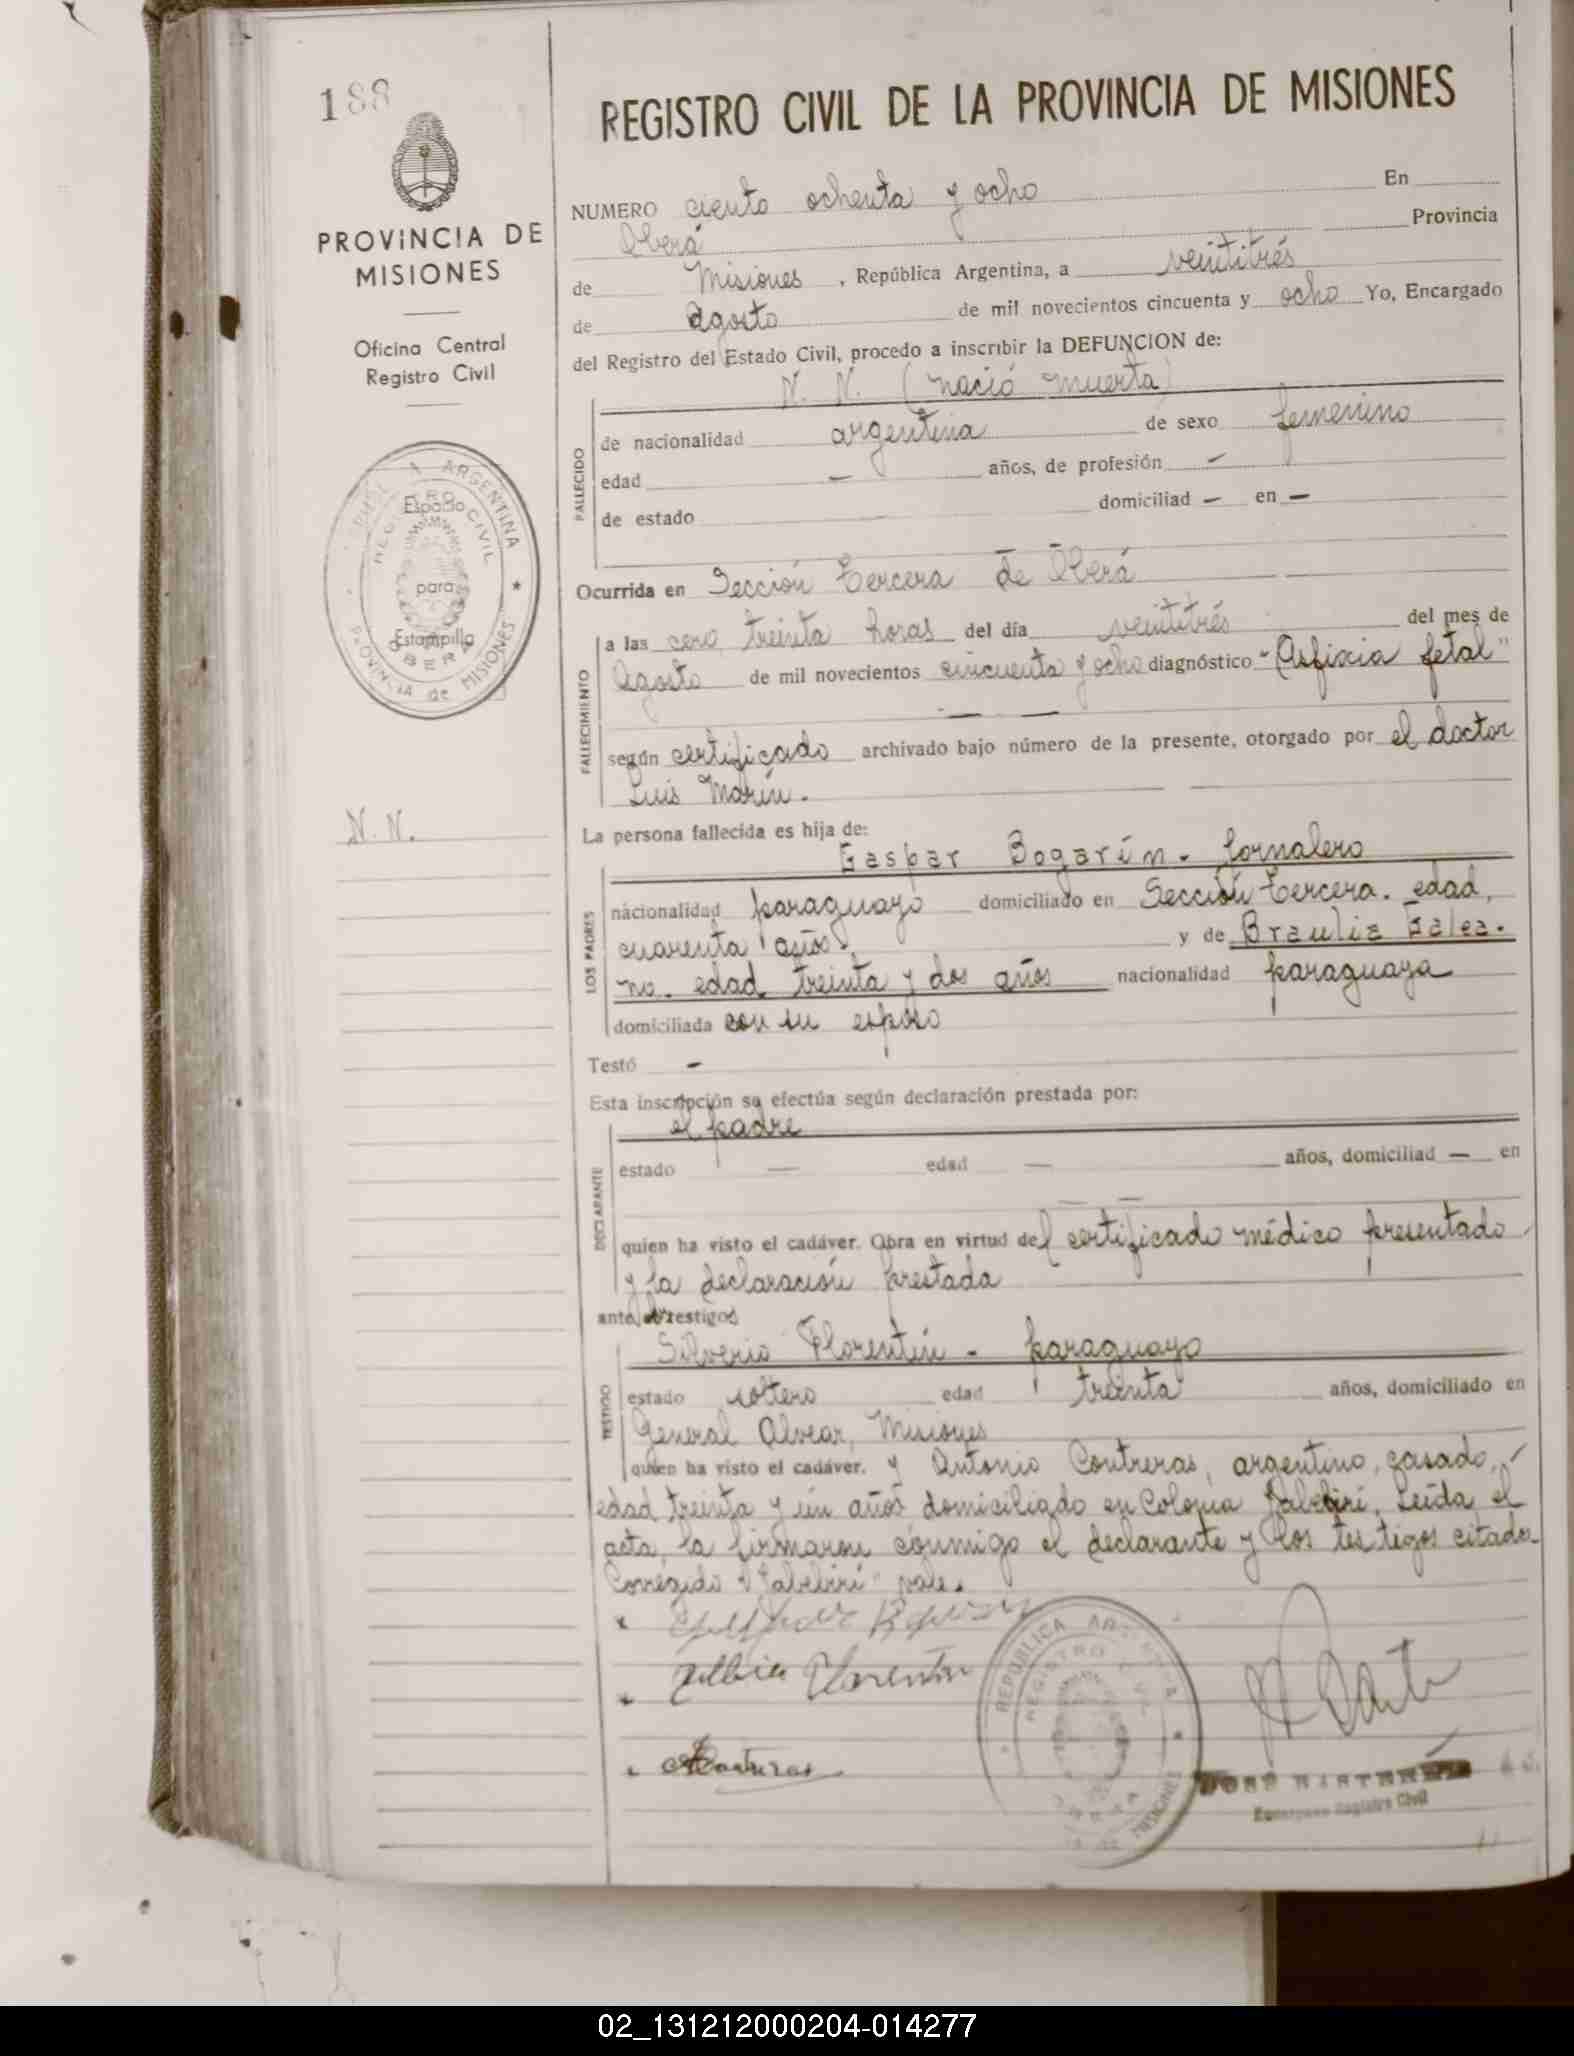 188
PROVINCIA DE
MISIONES
Oficina Central
Registro Civil
REGISTRO CIVIL DE LA PROVINCIA DE MISIONES
NUMERO ciento ochenta y ocho En
Oberá Provincia
de Misiones, República Argentina, a veintitrés
de Agosto de mil novecientos cincuenta y ocho Yo, Encargado
del Registro del Estado Civil, procedo a inscribir la DEFUNCION de:
N. N. (nació muerta)
FALLECIDO
de nacionalidad argentina de sexo femenino
edad — años, de profesión —
de estado domiciliad — en —
ARGENTINA
REGISTRO CIVIL
Espacio
para
Estampilla
OBERA
PROVINCIA de MISIONES
Ocurrida en Sección Tercera de Oberá
FALLECIMIENTO
a las cero treinta horas del día veintitrés del mes de
Agosto de mil novecientos cincuenta y ocho diagnóstico "Asfixia fetal"
— —
según certificado archivado bajo número de la presente, otorgado por el doctor
Luis Marín.
N. N.
La persona fallecida es hija de:
LOS PADRES
Gaspar Bogarín. Jornalero
nacionalidad paraguayo domiciliado en Sección Tercera. edad,
cuarenta años. y de Braulia Galea.
no. edad treinta y dos años nacionalidad paraguaya
domiciliada con su esposo
Testó —
Esta inscripción se efectúa según declaración prestada por:
DECLARANTE
el padre
estado — edad — años, domiciliad — en
— —
quien ha visto el cadáver. Obra en virtud del certificado médico presentado
y la declaración prestada
ante testigos
TESTIGO
Silverio Florentín - paraguayo
estado soltero edad treinta años, domiciliado en
General Alvear, Misiones
quien ha visto el cadáver. y Antonio Contreras, argentino, casado,
edad treinta y un años domiciliado en Colonia Yabebirí. Leída el
acta, la firmaron conmigo el declarante y los testigos citados
Corregido "Yabebirí" vale.
Florentin
REPUBLICA ARGENTINA
REGISTRO CIVIL
OBERA
MISIONES
JOSE
Encargado Registro Civil
02_131212000204-014277